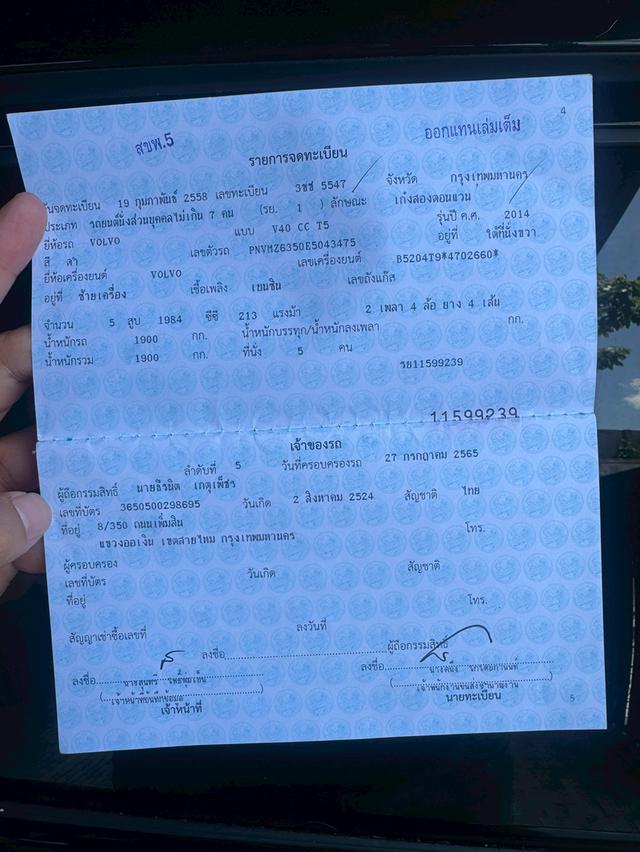 4
สขพ.5 ออกแทนเล่มเต็ม
รายการจดทะเบียน
วันจดทะเบียน 19 กุมภาพันธ์ 2558 เลขทะเบียน 3ขช 5547 จังหวัด กรุงเทพมหานคร
ประเภท รถยนต์นั่งส่วนบุคคลไม่เกิน 7 คน (รย. 1 ) ลักษณะ เก๋งสองตอนแวน
ยี่ห้อรถ VOLVO แบบ V40 CC T5 รุ่นปี ค.ศ. 2014
สี ดำ เลขตัวรถ PNVMZ6350E5043475 อยู่ที่ ใต้ที่นั่งขวา
ยี่ห้อเครื่องยนต์ VOLVO เลขเครื่องยนต์ B5204T9*4702660*
อยู่ที่ ซ้ายเครื่อง เชื้อเพลิง เบนซิน เลขถังแก๊ส
จำนวน 5 สูบ 1984 ซีซี 213 แรงม้า 2 เพลา 4 ล้อ ยาง 4 เส้น
น้ำหนักรถ 1900 กก. น้ำหนักบรรทุก/น้ำหนักลงเพลา กก.
น้ำหนักรวม 1900 กก. ที่นั่ง 5 คน
รย11599239
11599239
เจ้าของรถ
ลำดับที่ 5 วันที่ครอบครองรถ 27 กรกฎาคม 2565
ผู้ถือกรรมสิทธิ์ นายธีรนิต เกตุเพ็ชร
เลขที่บัตร 3650500298695 วันเกิด 2 สิงหาคม 2524 สัญชาติ ไทย
ที่อยู่ 8/350 ถนนเพิ่มสิน โทร.
แขวงออเงิน เขตสายไหม กรุงเทพมหานคร
ผู้ครอบครอง
เลขที่บัตร วันเกิด สัญชาติ
ที่อยู่ โทร.
สัญญาเช่าซื้อเลขที่ ลงวันที่
ลงชื่อ ผู้ถือกรรมสิทธิ์
ลงชื่อ ลงชื่อ
เจ้าหน้าที่ นายทะเบียน
5